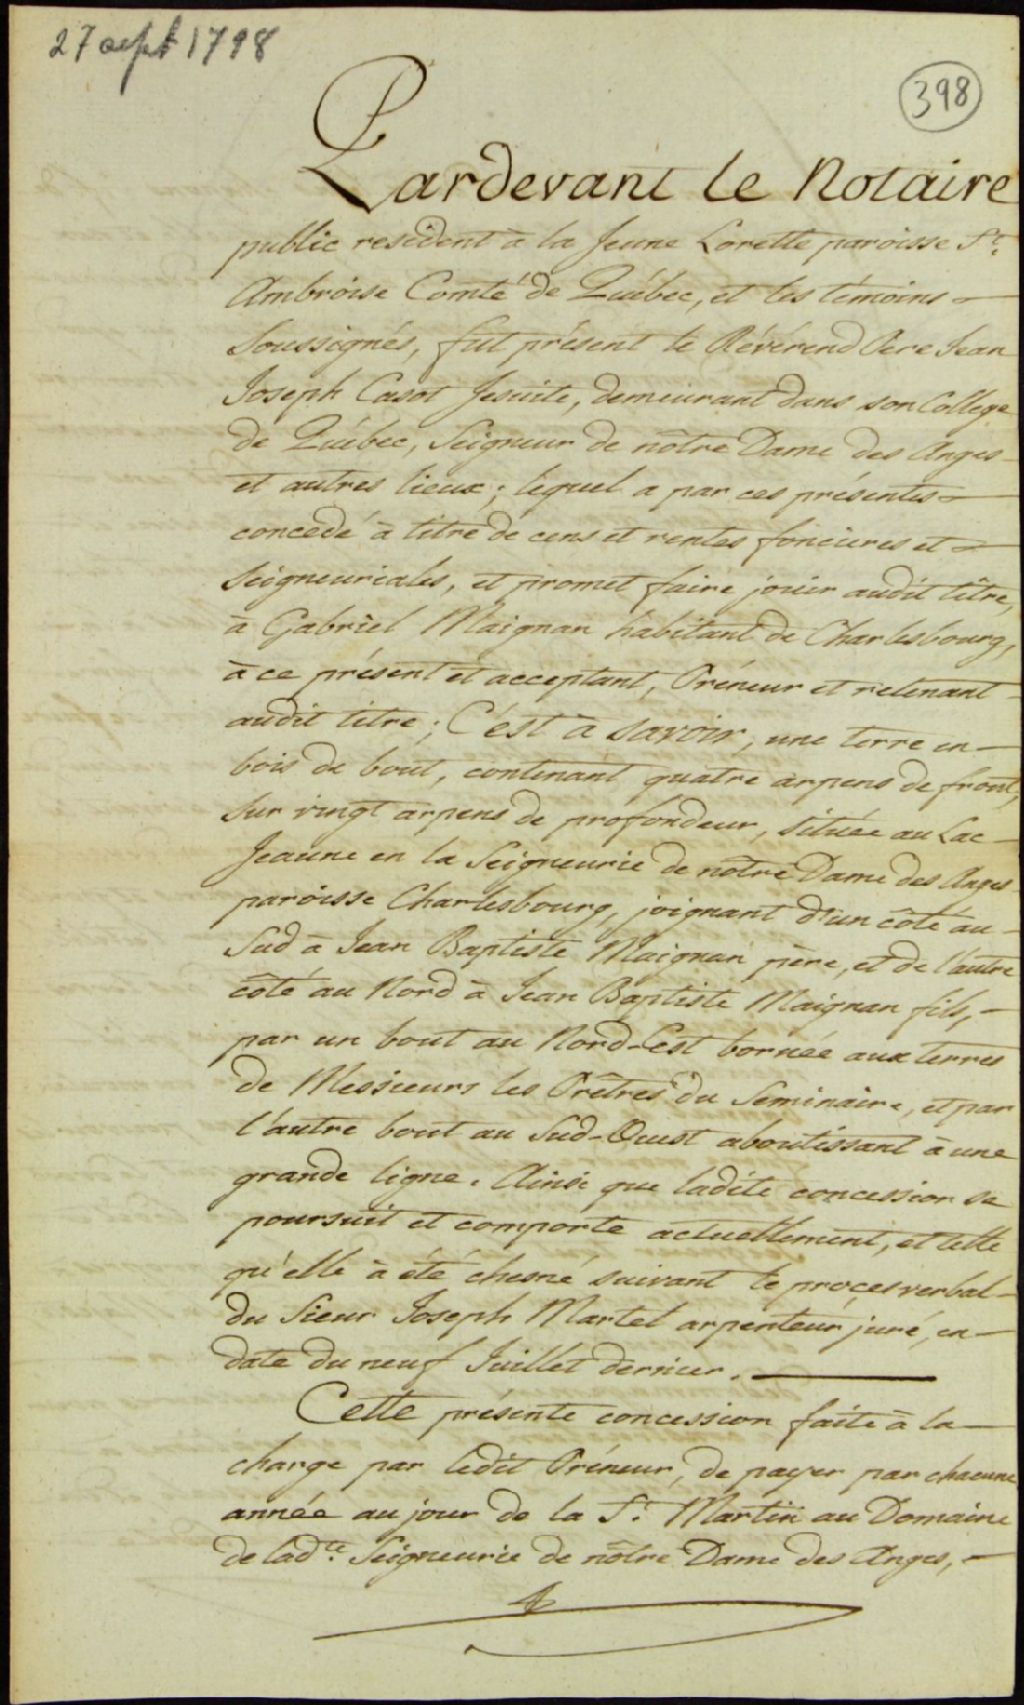 27 sept 1798
398
Pardevant le Notaire
public resident à la Jeune Lorette paroisse St.
Ambroise Comté de Québec, et les témoins
Soussignés, fut présent le Révérend Pere Jean
Joseph Casot Jesuite, demeurant dans son College
de Québec, Seigneur de nôtre Dame des Anges
et autres lieux; lequel a par ces présentes
concedé à titre de cens et rentes foncieres et
Seigneuriales, et promet faire jouir audit titre,
à Gabriel Maignan habitant de Charlesbourg,
à ce présent et acceptant, Préneur et retenant
audit titre; C'est à savoir, une terre en
bois de bout, contenant quatre arpens de front,
Sur vingt arpens de profondeur, située au Lac
Jeaune en la Seigneurie de nôtre Dame des Anges
paroisse Charlesbourg, joignant d'un côté au
Sud à Jean Baptiste Maignan père, et de l'autre
côté au Nord à Jean Baptiste Maignan fils,
par un bout au Nord-Est bornée aux terres
de Messieurs les Prêtres du Seminaire, et par
l'autre bout au Sud-Ouest aboutissant à une
grande ligne. Ainsi que ladite concession se
poursuit et comporte actuellement, et telle
qu'elle à été chesné suivant le procesverbal
du Sieur Joseph Martel arpenteur juré, en
date du neuf Juillet dernier.
Cette présente concession faite à la
charge par ledit Préneur, de payer par chacune
année au jour de la St. Martin au Domaine
de ladte. Seigneurie de nôtre Dame des Anges,